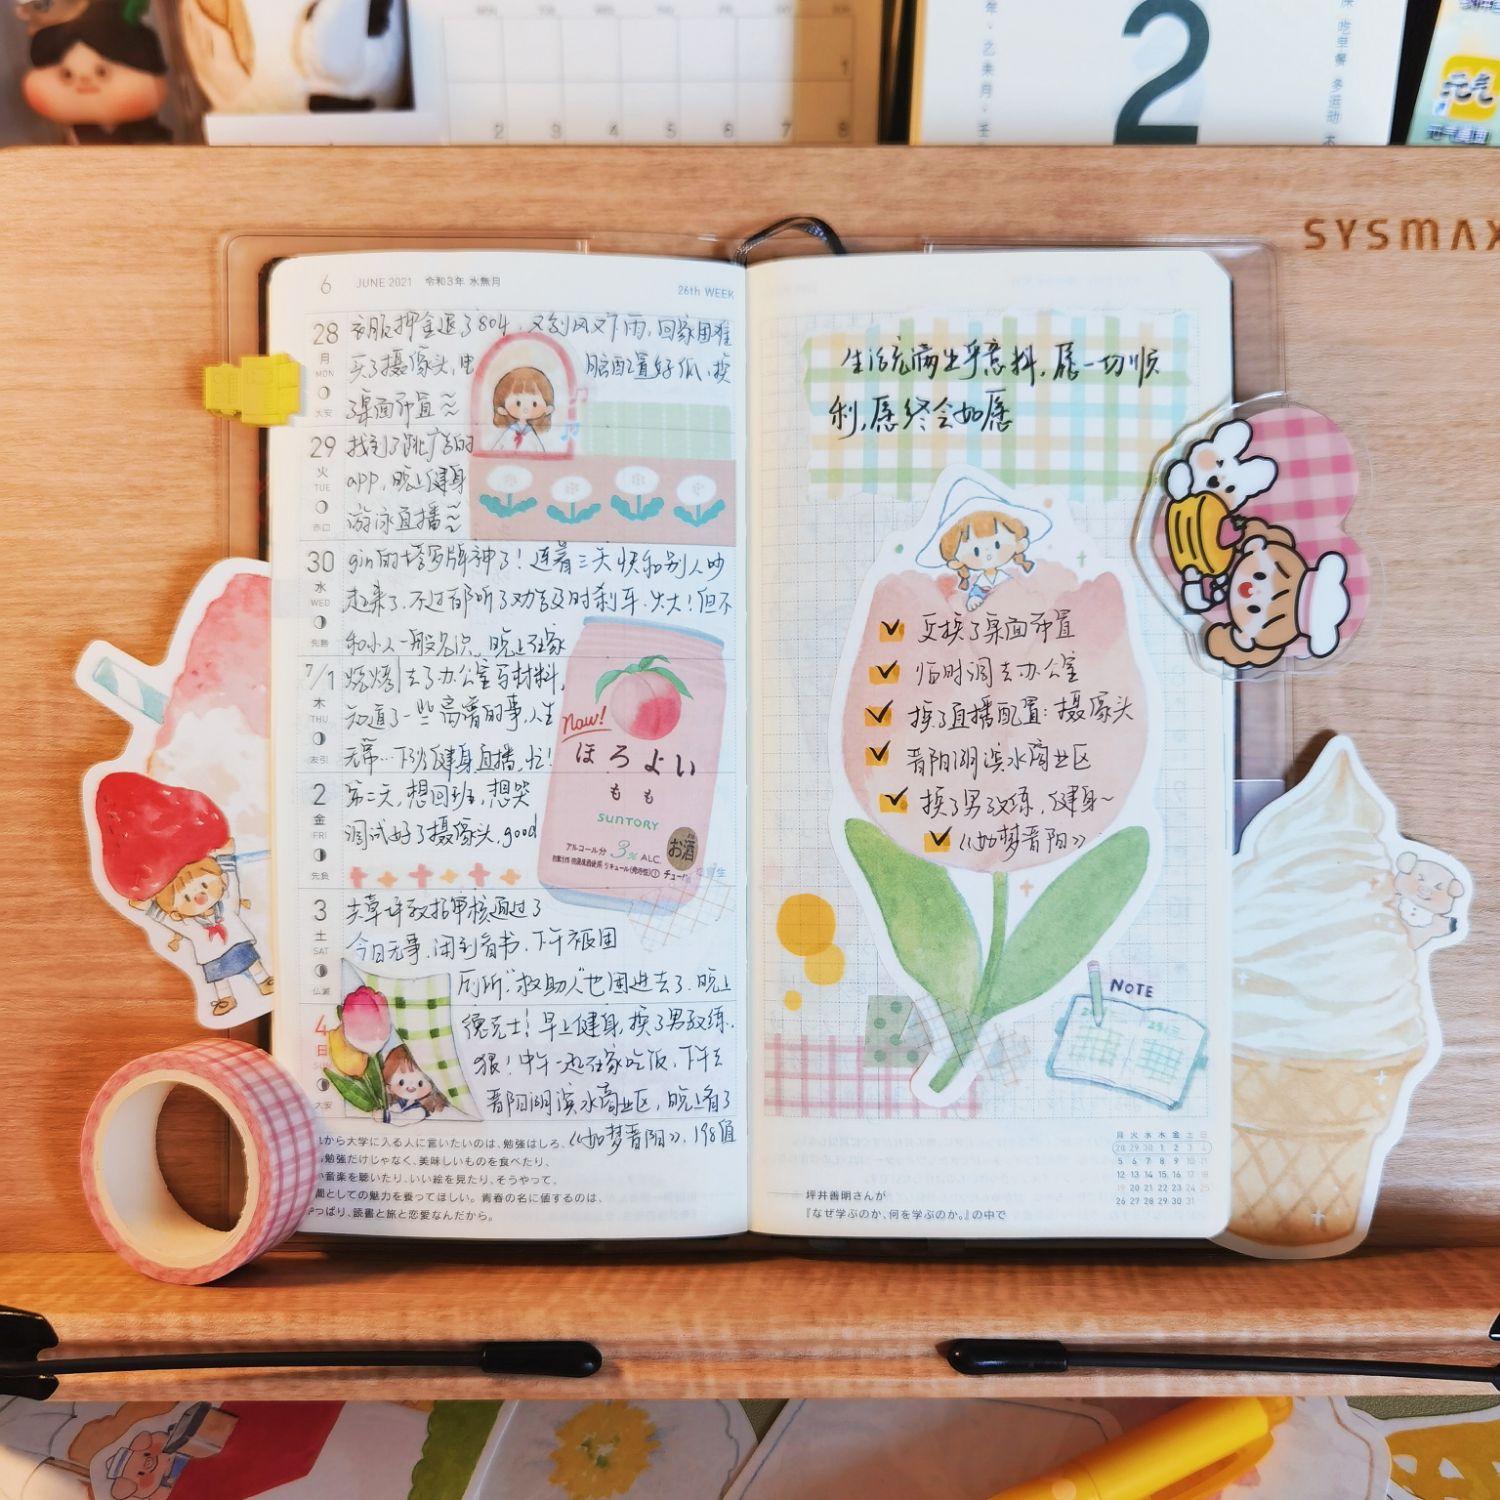 2
元气
SYSMAX
6
JUNE 2021 令和3年 水無月
26th WEEK
28 衣服押金退了804，又刮风又下雨，回家困难
月
MON
买了摄像头，电脑配置好低，换
大安
了桌面布置~~
29 找到了跳广告的
火
TUE
app，晚上健身
赤口
游泳直播~~
30 gin的塔罗牌神了！连着三天快和别人吵
水
WED
起来了，不过都听了劝告及时刹车，火大！但不
先勝
和小人一般见识，晚上在家
7/1 烧烤|去了办公室写材料，
木
THU
知道了一些离谱的事，人生
友引
无常…下班健身直播，忙！
2 第二天，想回班，想哭
金
FRI
调试好了摄像头，good
先負
3
审核通过了
土
SAT
今日无事，闲到看书，下午被困
仏滅
厕所"救助人"也困进去了，晚上
4
日
德克士！早上健身，换了男教练，
狠！中午一起在家吃饭，下午去
大安
晋阳湖滨水商业区，晚上看了
《如梦晋阳》，198值
Now!
ほろよい
もも
SUNTORY
アルコール分 3% ALC.
お酒
から大学に入る人に言いたいのは、勉強はしろ、
勉強だけじゃなく、美味しいものを食べたり、
音楽を聴いたり、いい絵を見たり、そうやって、
間としての魅力を養ってほしい。青春の名に値するのは、
つぱり、読書と旅と恋愛なんだから。
生活充满出乎意料，愿一切顺
利，愿终会如愿
更换了桌面布置
临时调去办公室
换了直播配置：摄像头
晋阳湖滨水商业区
换了男教练，健身~
《如梦晋阳》
NOTE
月 火 水 木 金 土 日
28 29 30 1 2 3 4
5 6 7 8 9 10 11
12 13 14 15 16 17 18
19 20 21 22 23 24 25
26 27 28 29 30 31
坪井善明さんが
『なぜ学ぶのか、何を学ぶのか。』の中で